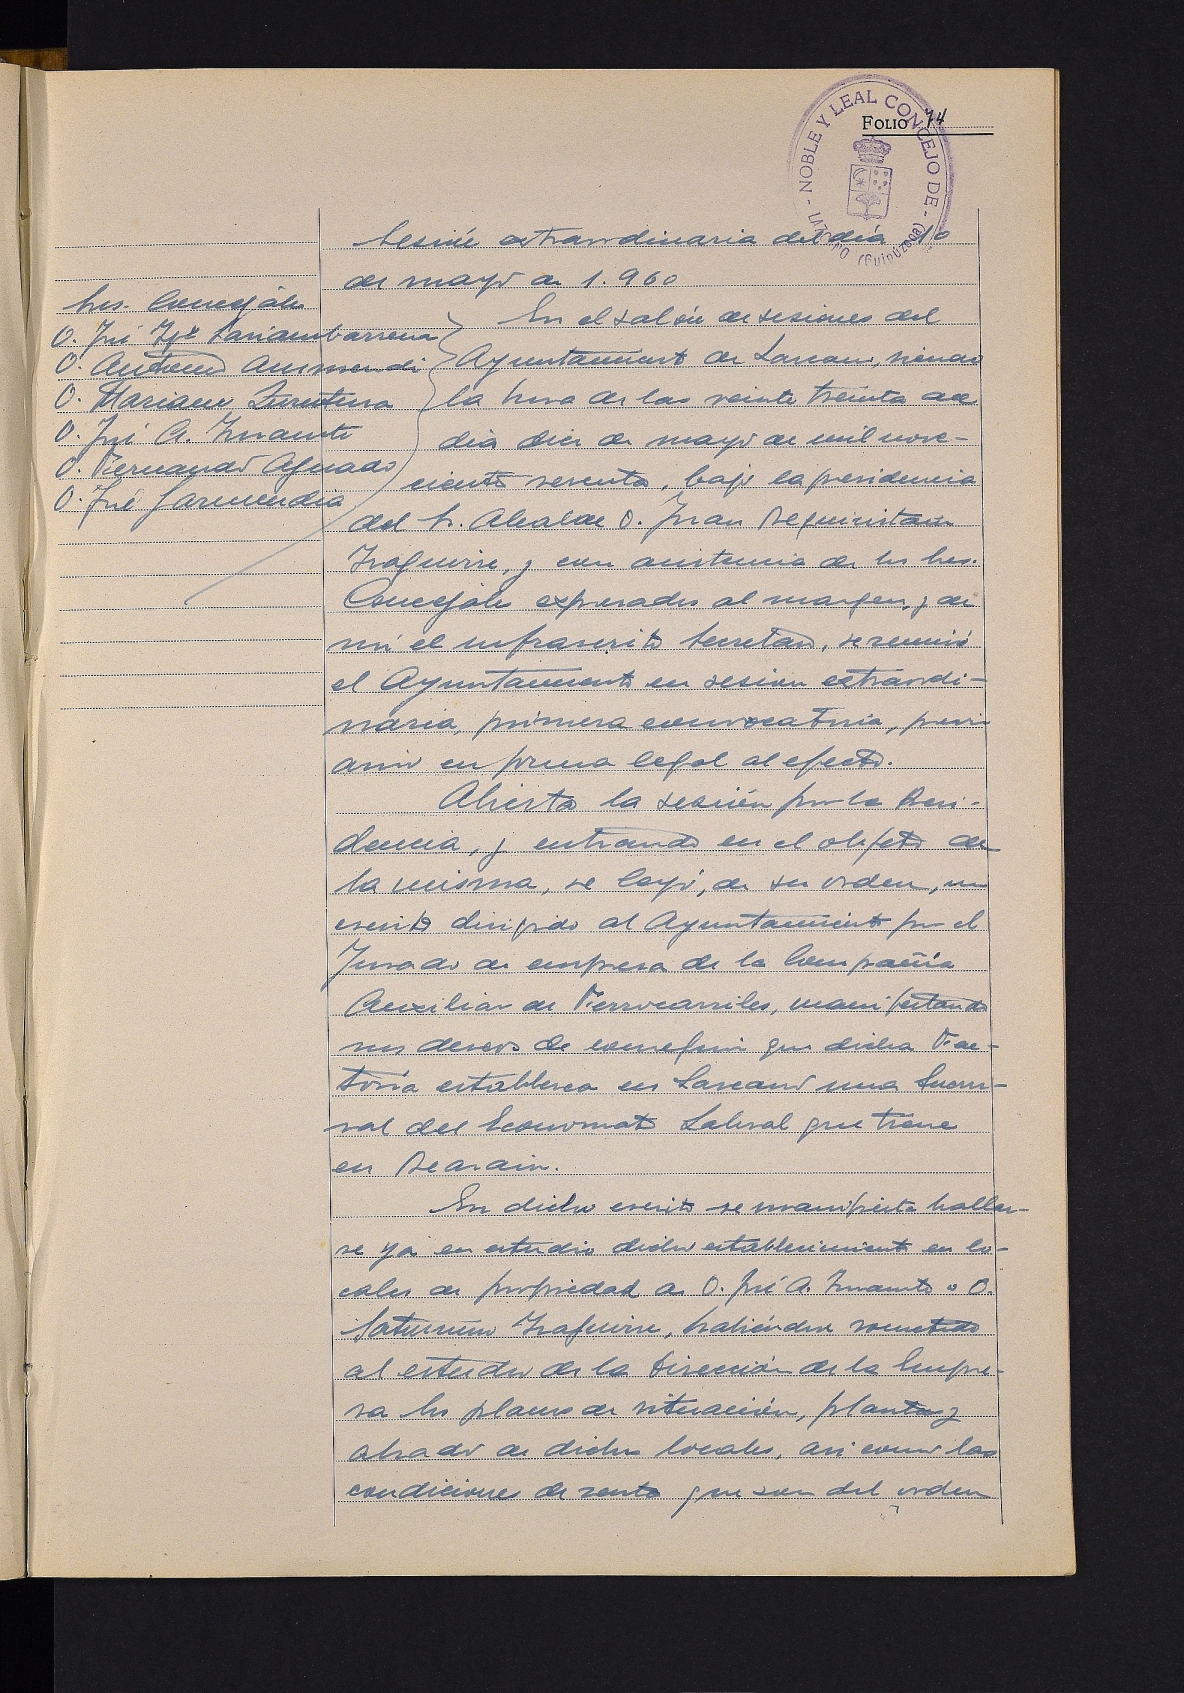 FOLIO 74
- NOBLE Y LEAL CONCEJO DE -
(Guipúzcoa)
Sesión extraordinaria del día 10
de mayo de 1.960
Sres. Concejales
D. José Igº Lariambarrena
D. Antonio Aurmendi
D. Mariano Zurutuza
D. José A. Insausti
D. Fernando Aguado
D. José Garmendia
En el salón de sesiones del
Ayuntamiento de Lazcano, siendo
la hora de las veinte treinta del
día diez de mayo de mil nove-
cientos sesenta, bajo la presidencia
del Sr. Alcalde D. Juan Beguiristain
Izaguirre, y con asistencia de los Sres.
Concejales expresados al margen, y de
mí el infrascrito Secretario, se reunió
el Ayuntamiento en sesión extraordi-
naria, primera convocatoria, previo
aviso en forma legal al efecto.
Abierta la sesión por la Presi-
dencia, y entrando en el objeto de
la misma, se leyó, de su orden, un
escrito dirigido al Ayuntamiento por el
Jurado de empresa de la Compañía
Auxiliar de Ferrocarriles, manifestando
sus deseos de conseguir que dicha Fac-
toría establezca en Lazcano una Sucur-
sal del Economato Laboral que tiene
en Beasain.
En dicho escrito se manifiesta hallar-
se ya en estudio dicho establecimiento en lo-
cales de propiedad de D. José A. Insausti o D.
Saturnino Izaguirre, habiéndose sometido
al estudio de la Dirección de la Empre-
sa los planos de situación, planta y
alzado de dichos locales, así como las
condiciones de renta que son del orden